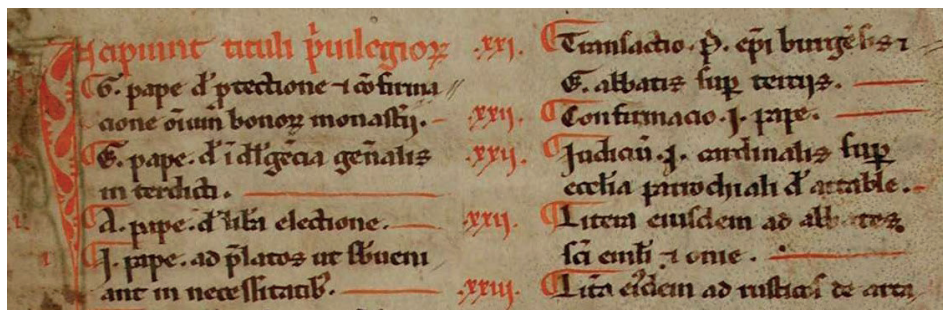 Incipiunt tituli p̄uilegioꝝ
G. pape d̄ ꝓtectione ⁊ ꝯfirma
cione oīum bonoꝝ monast̄ij.
G. pape. d̄ īdl̄gēcia gen̄alis
in terdicti.
A. pape. d̄ lib̄a electione.
I. pape. ad p̄latos ut sb̄ueni
ant in necessitatib᷒.
.xxi. Transactio. P. ep̄i burgēsis ⁊
G. abbatis sup̄ terciis.
.xxii. Confirmacio. I. pape.
.xxii. Iudiciū. I. cardinalis sup̄
eccl̄ia parrochiali d̄
.xxii. Litera eiusdem ad
sc̄i emil̄ ⁊ onie.
.xxiii. Lit̄a eiꝰdem ad rusticos de